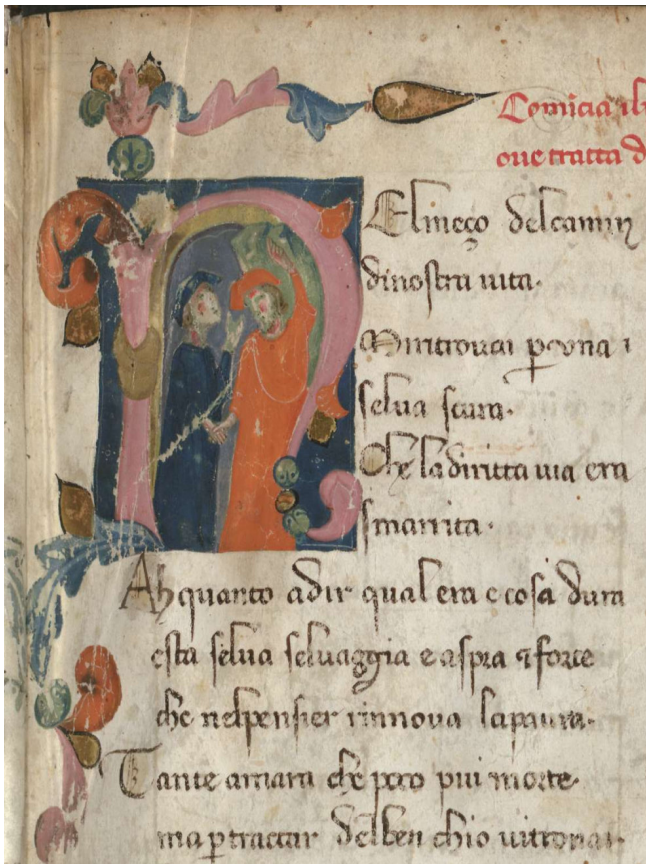 Comicia il
oue tracta d
El meço del camin
di nostra uita.
Mi ritrouai p una
selua scura.
Che la diritta uia era
smarrita.
Ah quanto a dir qual era e cosa dura
esta selua seluaggia e aspra & forte
che nel pensier rinnoua la paura.
Tante amara che poco piu morte.
ma p tractar del ben chio ui trouai.